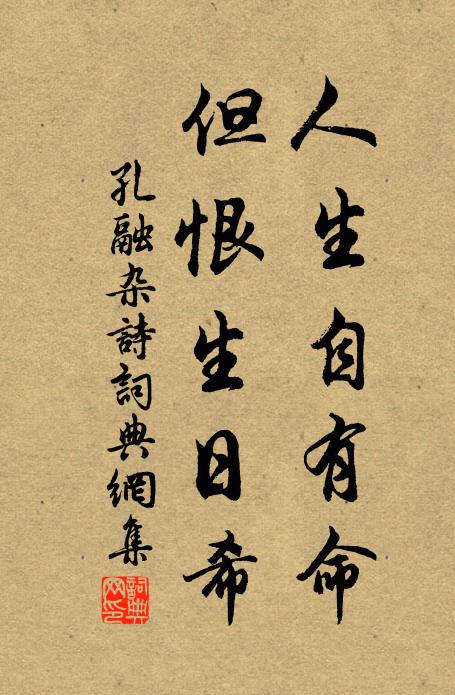 人生自有命
但恨生日希
孔融杂詩詞典網集
詞典网印